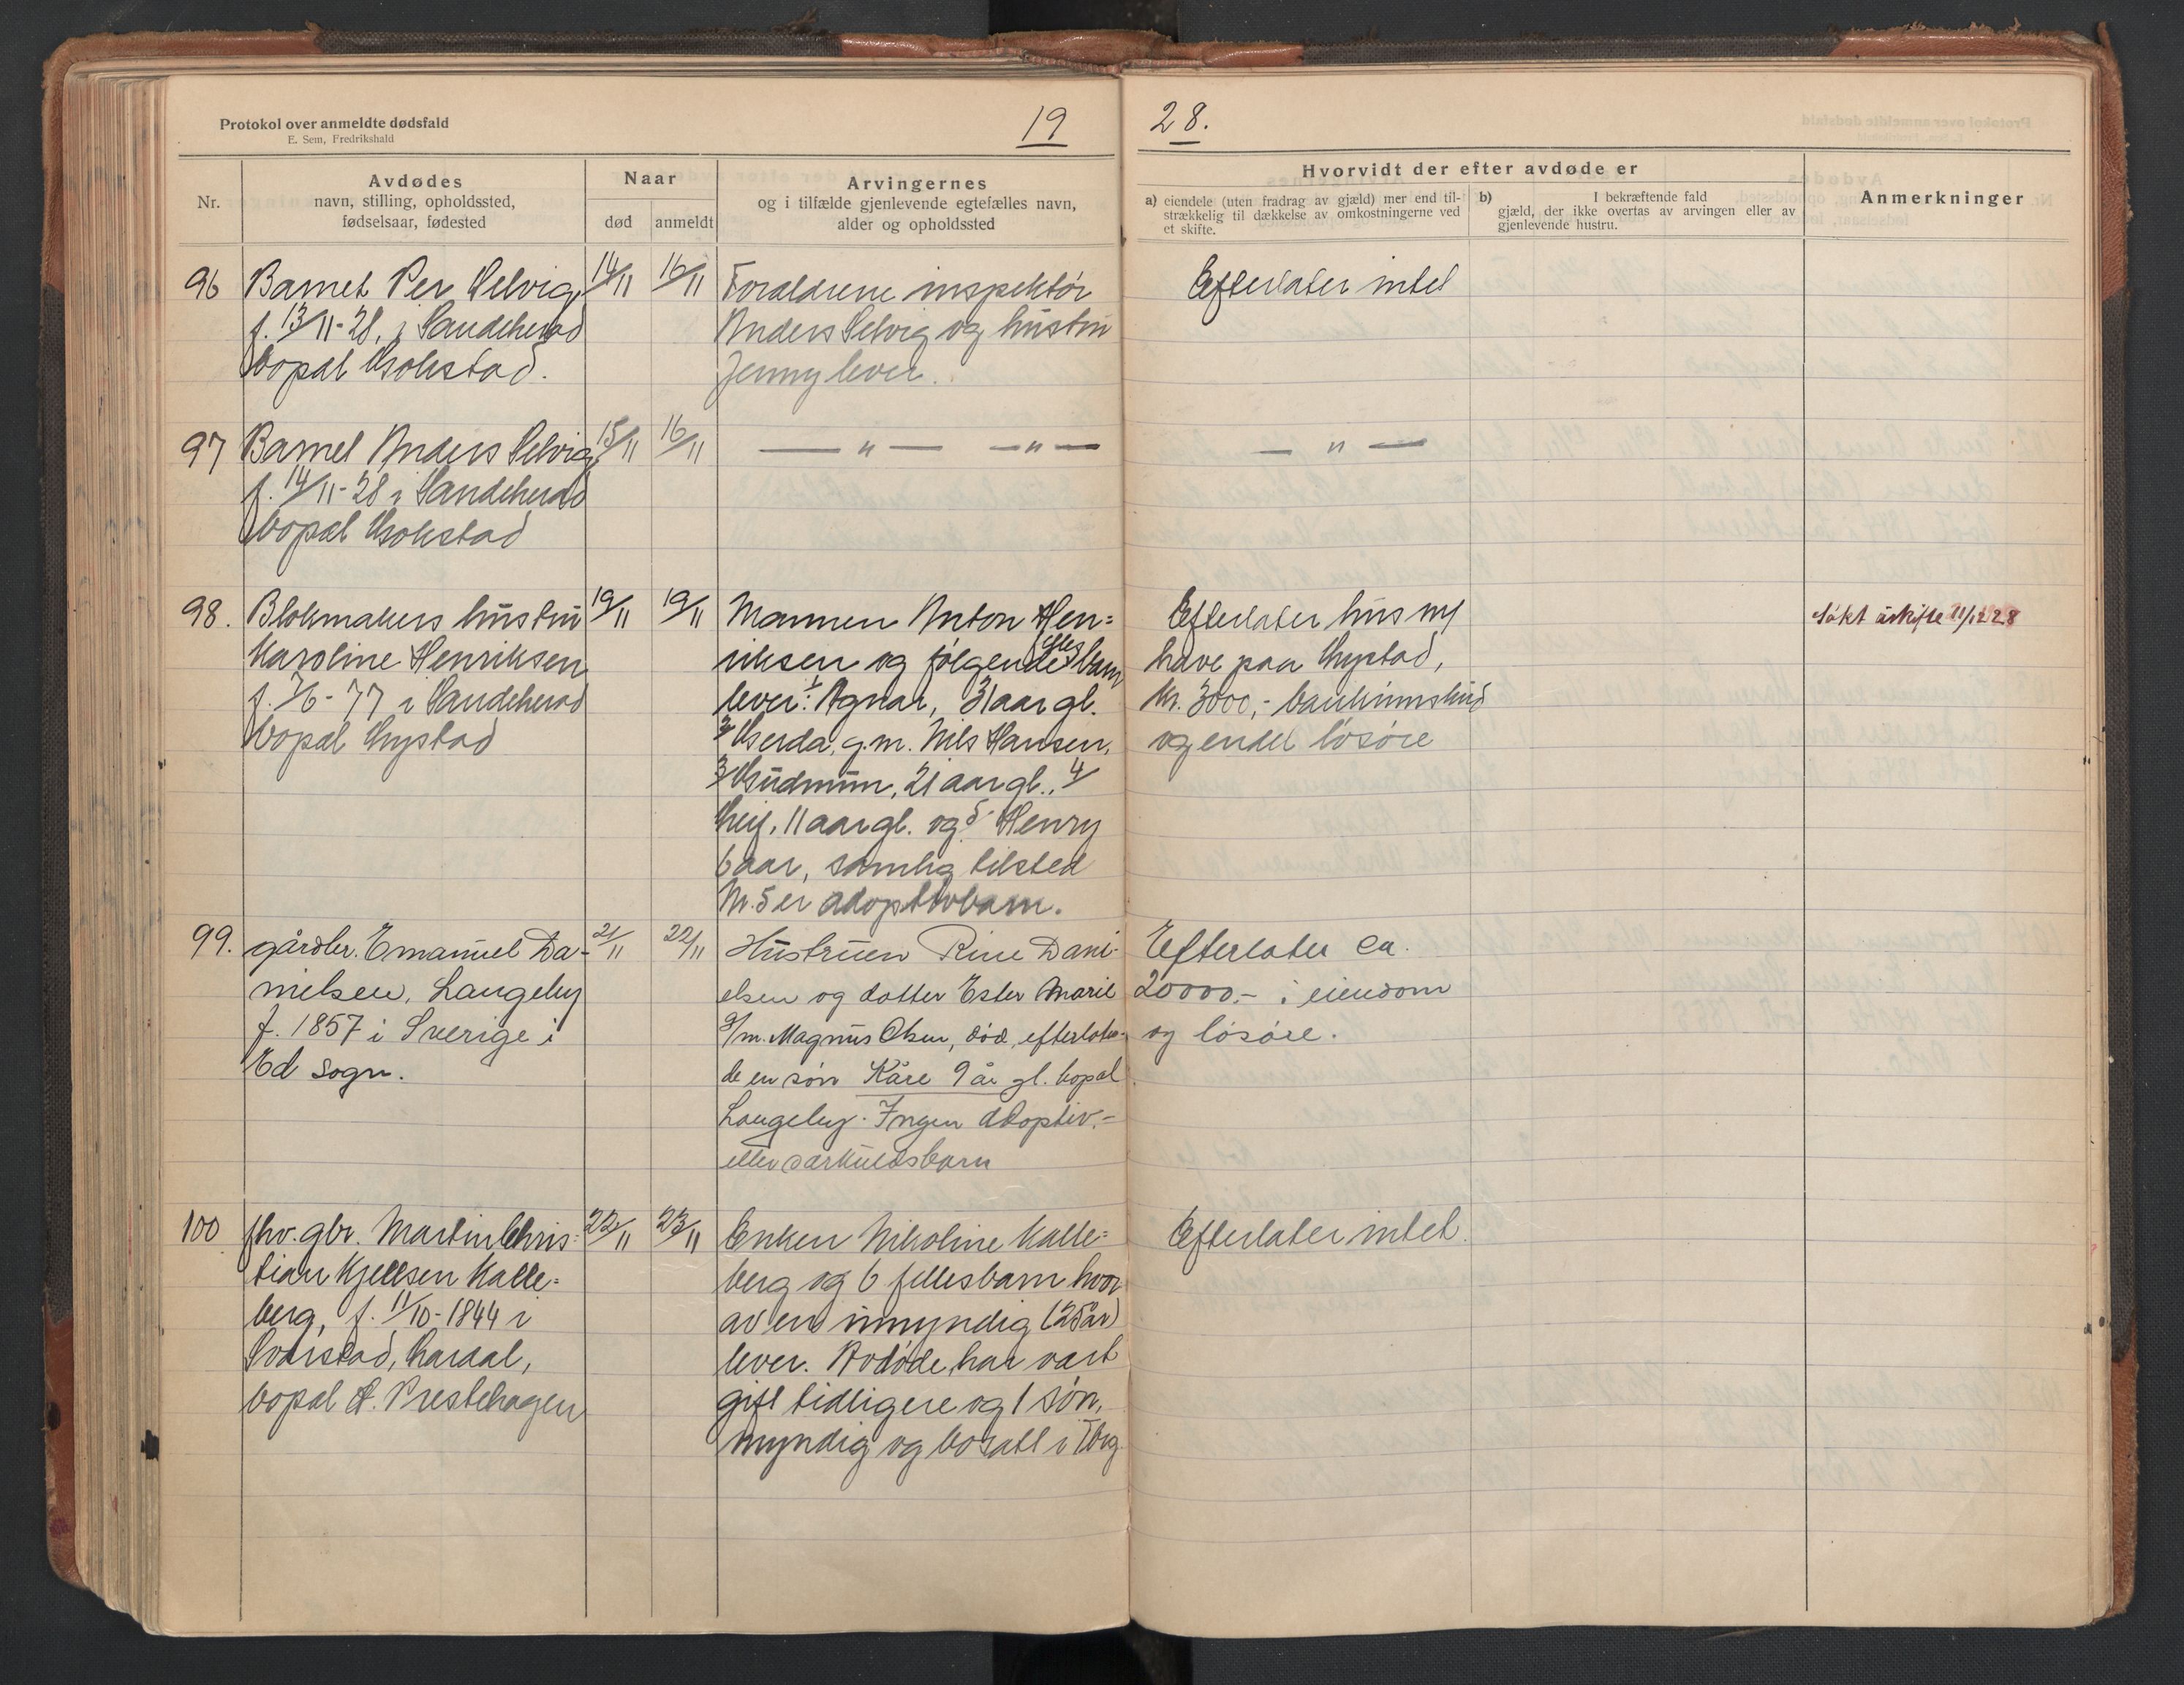 Protokol over anmeldte dødsfald
E. Sem, Fredrikshald
19
28.
Nr.
Avdødes
navn, stilling, opholdssted,
fødselsaar, fødested
Naar
død
anmeldt
Arvingernes
og i tilfælde gjenlevende egtefælles navn,
alder og opholdssted
Hvorvidt der efter avdøde er
a) eiendele (uten fradrag av gjæld) mer end til-
strækkelig til dækkelse av omkostningerne ved
et skifte.
b) I bekræftende fald
gjæld, der ikke overtas av arvingen eller av
gjenlevende hustru.
Anmerkninger
96
Barnet Per Selvig
f. 13/11-28, i Sandeherad
bopæl Gokstad.
14/11
16/11
Forældrene inspektør
Anders Selvig og hustru
Jenny lever.
Efterlater intet
97
Barnet Anders Selvig,
f. 14/11-28 i Sandeherad
bopæl Gokstad
15/11
16/11
— " — — " —
— " —
98.
Blokmakers hustru
Karoline Henriksen
f. 7/6-77 i Sandeherad
bopæl Nystad
19/11
19/11
Mannen Anton Hen=
riksen og følgende felles barn
lever: 1/ Agnar, 31 aar gl.
2/ Gerda, g.m. Nils Hansen,
3/ Gudmun, 21 aar gl., 4/
Leif, 11 aar gl. og 5/ Henry
6 aar, samtlig tilsted
Nr. 5 er adoptivbarn.
Efterlater hus m/
have paa Nystad,
kr. 3000,- bankinnskud
og endel løsøre
Søkt uskifte 11/12 28
99.
gårdbr. Emanuel Da-
nielsen, Langeby
f. 1857 i Sverige i
Ed sogn.
21/11
22/11
Hustruen Rine Dani-
elsen og datter Ester Marie
g/m. Magnus Olsen, død, efterlate-
de en søn Kåre 9 år gl. bopæl
Langeby. Ingen adoptiv-
eller særkuldsbarn
Efterlater ca.
20000.- i eiendom
og løsøre.
100
fhv. gbr. Martin Chris=
tian Kjellsen Kalle=
berg, f. 11/10-1844 i
Svarstad, Lardal,
bopæl Prestehagen
22/11
23/11
Enken Nikoline Kalle=
berg og 6 fellesbarn hvor
av en umyndig (25 år)
lever. Avdøde har vært
gift tidligere og 1 søn,
myndig og bosatt i Tbrg.
Efterlater intet.